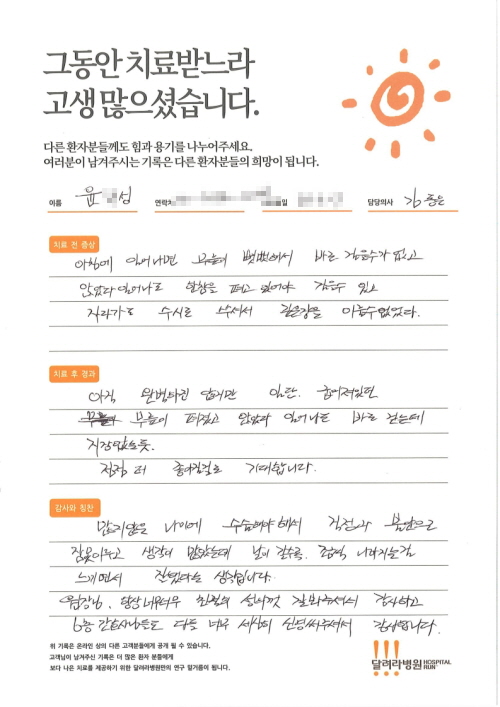 그동안 치료받느라
고생 많으셨습니다.
다른 환자분들께도 힘과 용기를 나누어주세요.
여러분이 남겨주시는 기록은 다른 환자분들의 희망이 됩니다.
이름 윤 성 연락처 일 담당의사
치료 전 증상
아침에 일어나면 무릎이 뻣뻣해서 바로 걸을수가 없고
앉았다 일어나도 한참을 펴고 있어야 걸을수 있고
자다가도 수시로 쑤셔서 깊은잠을 이룰수 없었다.
치료 후 경과
아직 완벽하진 않지만 일단. 굽어져있던
무릎이 펴졌고 앉았다 일어나도 바로 걷는데
지장없는듯.
점점 더 좋아질걸로 기대합니다.
감사와 칭찬
많지않은 나이에 수술해야해서 걱정과 불안으로
잠못이루고 생각이 많았는데 날이 갈수록. 조금씩 나아지는걸
느끼면서 잘했다는 생각입니다.
원장님. 항상 너무너무 친절히 성심껏 잘 봐주셔서 감사하고
6층 간호사님들도 다들 너무 세심히 신경써주셔서 감사합니다.
위 기록은 온라인 상의 다른 고객분들에게 공개 될 수 있습니다.
고객님이 남겨주신 기록은 더 많은 환자 분들에게
보다 나은 치료를 제공하기 위한 달려라병원만의 연구 밑거름이 됩니다.
달려라병원 HOSPITAL RUN